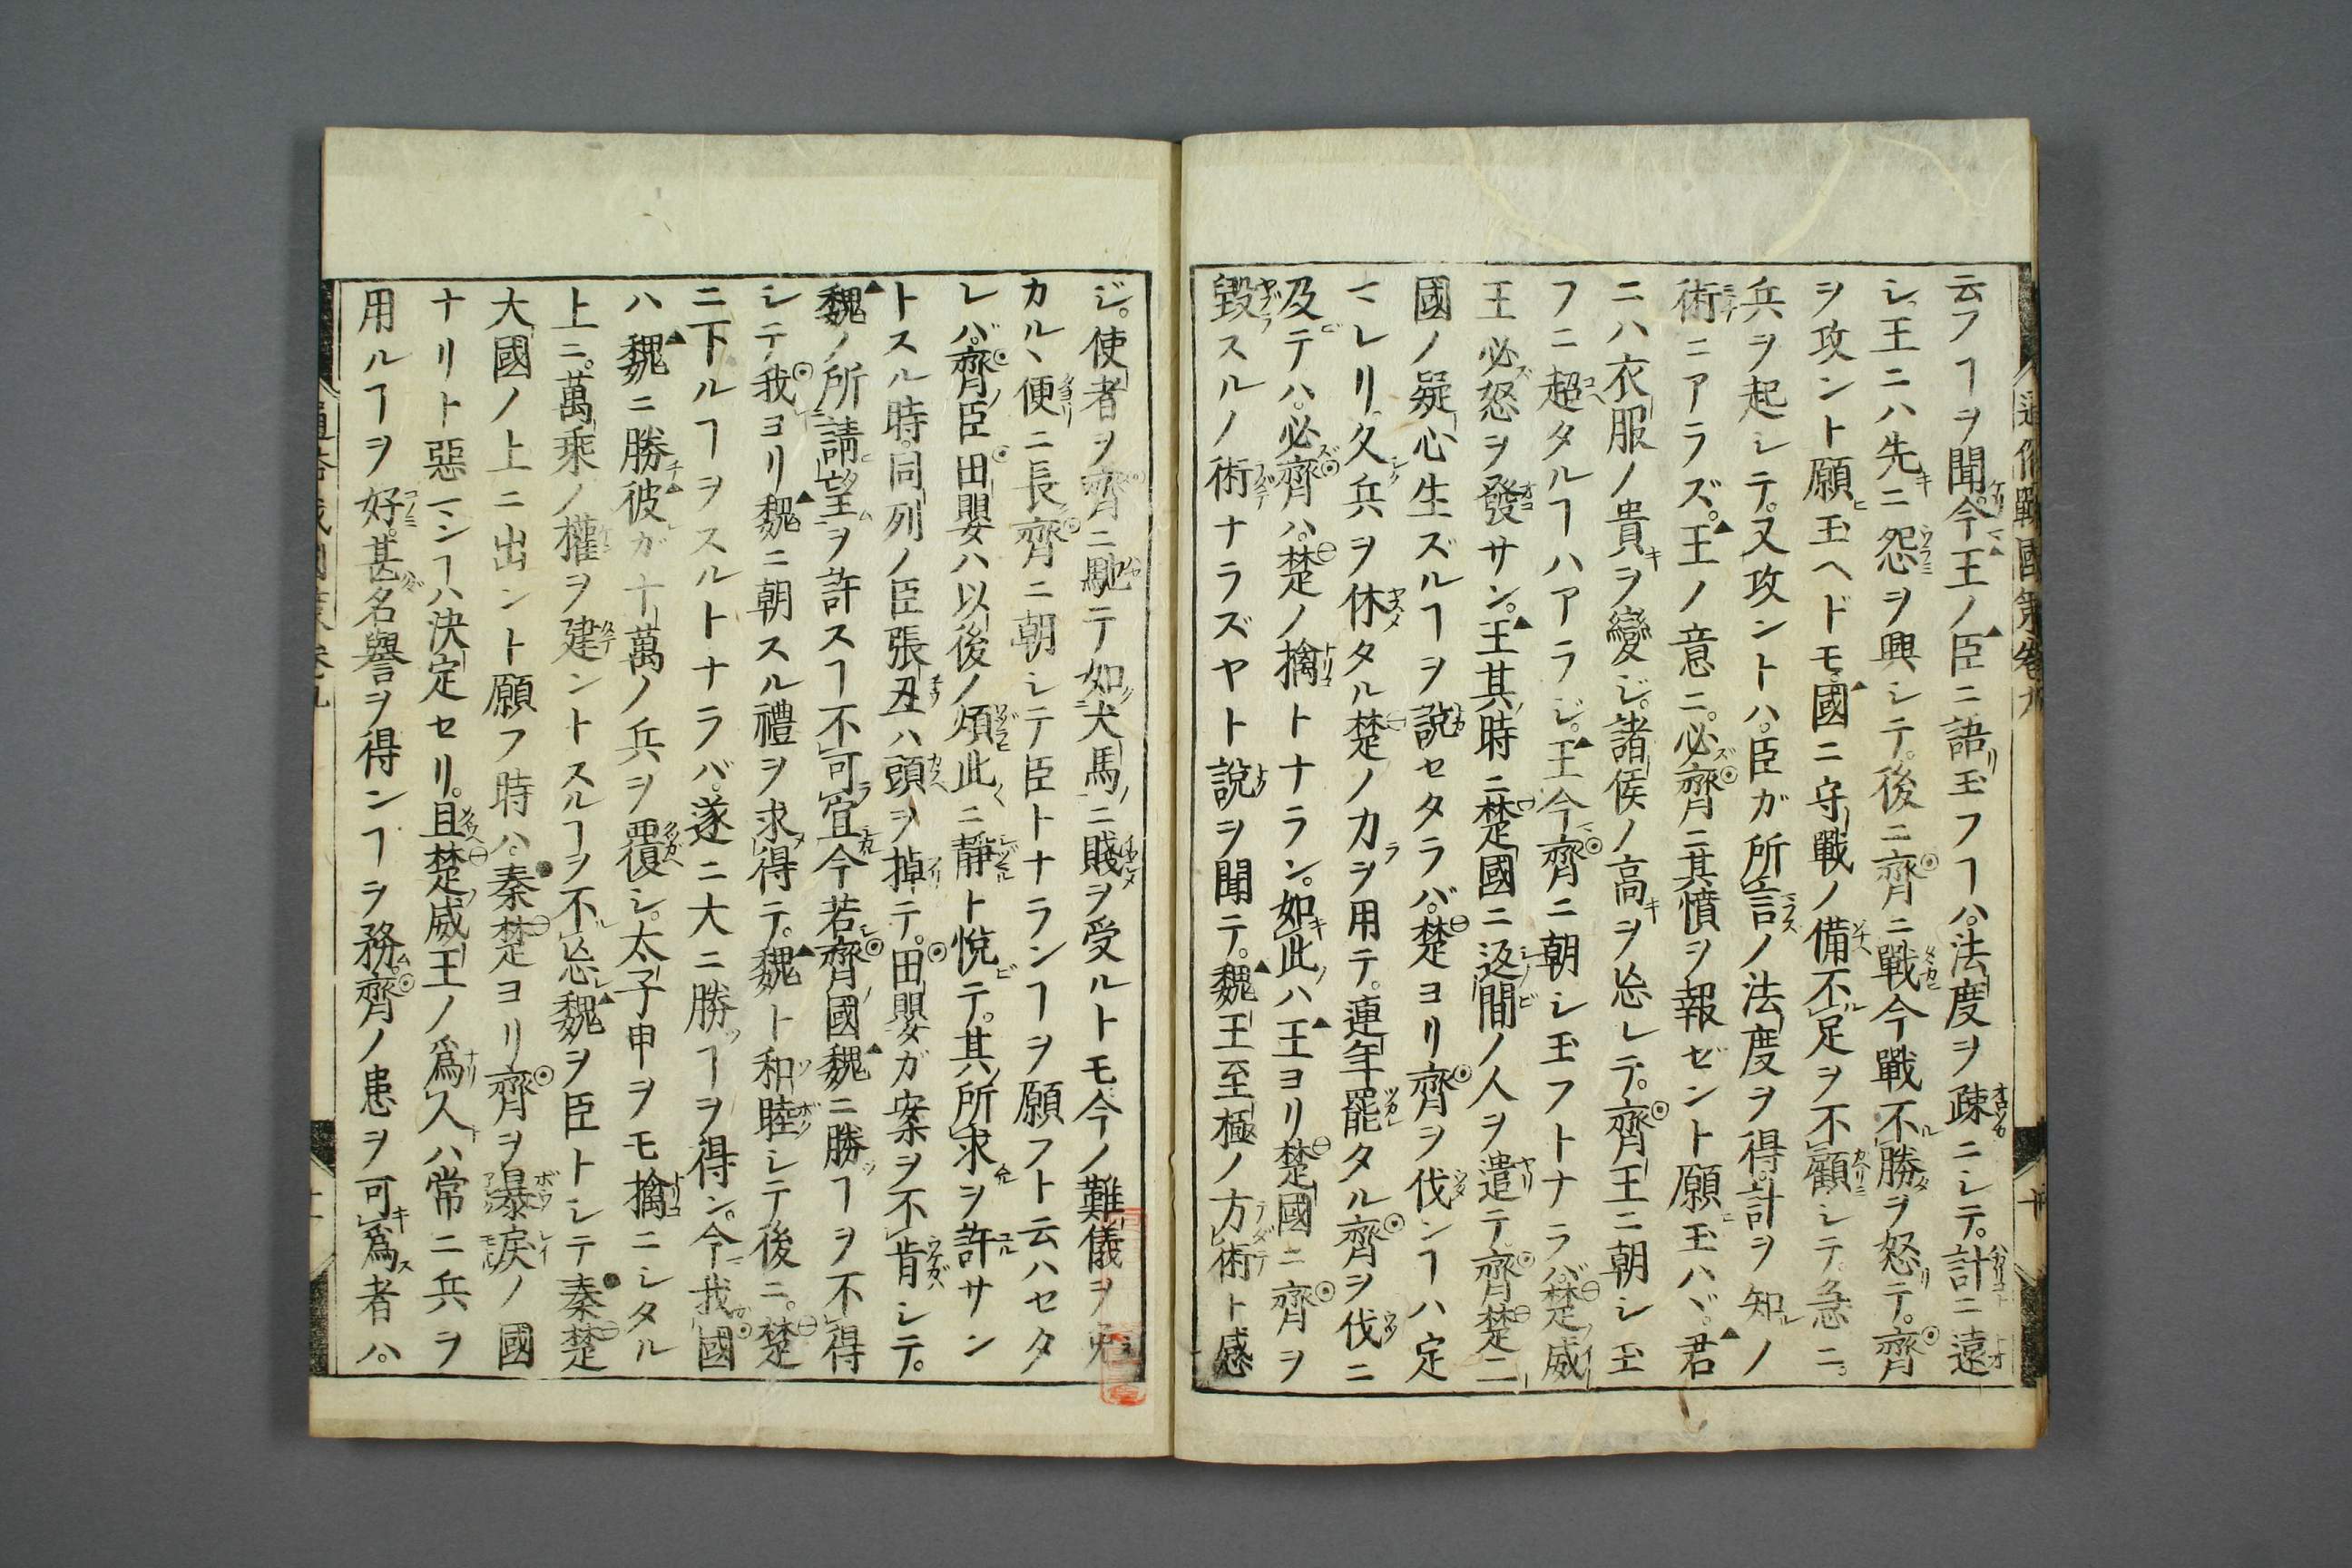 通俗戰國策卷九
云フヿヲ聞今王ノ臣ニ語リ玉フヿハ。法度ヲ疎ニシテ。計ニ遠
シ。王ニハ先ニ怨ヲ興シテ。後ニ齊ニ戰今戰不勝ヲ怒テ。齊
ヲ攻ント願玉ヘドモ。國ニ守戰ノ備不足ヲ不顧シテ。急ニ。
兵ヲ起シテ。又攻ントハ。臣ガ所言ノ法度ヲ得。計ヲ知ノ
術ニアラズ。王ノ意ニ。必齊ニ其憤ヲ報ゼント願玉ハヾ。君
ニハ衣服ノ貴ヲ變ジ。諸侯ノ高ヲ忘レテ。齊王ニ朝シ玉
フニ超タルヿハアラジ。王今齊ニ朝シ玉フトナラバ。楚威
王必怒ヲ發サン。王其時ニ楚國ニ返間ノ人ヲ遣テ。齊楚二
國ノ疑心生ズルヿヲ說セタラバ。楚ヨリ齊ヲ伐ンヿハ定
マレリ。久兵ヲ休タル楚ノ力ヲ用テ。連年罷タル齊ヲ伐ニ
及テハ。必齊ハ。楚ノ擒トナラン。如此ハ王ヨリ楚國ニ齊ヲ
毀スルノ術ナラズヤト說ヲ聞テ。魏王至極ノ方術ト感
ジ。使者ヲ齊ニ馳テ如犬馬ニ賤ヲ受ルトモ今ノ難儀ヲ免
カルヽ便ニ長齊ニ朝シテ臣トナランヿヲ願フト云ハセタ
レバ。齊臣田嬰ハ以後ノ煩此ニ靜ト悅テ。其所求ヲ許サン
トスル時。同列ノ臣張丑ハ頭ヲ掉テ。田嬰ガ案ヲ不肯シテ。
魏ノ所請望ヲ許スヿ不可宜今若齊國魏ニ勝ヿヲ不得
シテ我ヨリ魏ニ朝スル禮ヲ求得テ。魏ト和睦シテ後ニ。楚
ニ下ルヿヲスルトナラバ。遂ニ大ニ勝ヿヲ得ン。今我國
ハ魏ニ勝彼ガ十萬ノ兵ヲ覆シ。太子申ヲモ擒ニシタル
上ニ。萬乘ノ權ヲ建ントスルヿヲ不忘魏ヲ臣トシテ秦楚
大國ノ上ニ出ント願フ時ハ。秦楚ヨリ齊ヲ暴戾ノ國
ナリト惡ンヿハ決定セリ。且楚威王ノ爲人ハ常ニ兵ヲ
用ルヿヲ好。甚名譽ヲ得ンヿヲ務。齊ノ患ヲ可爲者ハ。